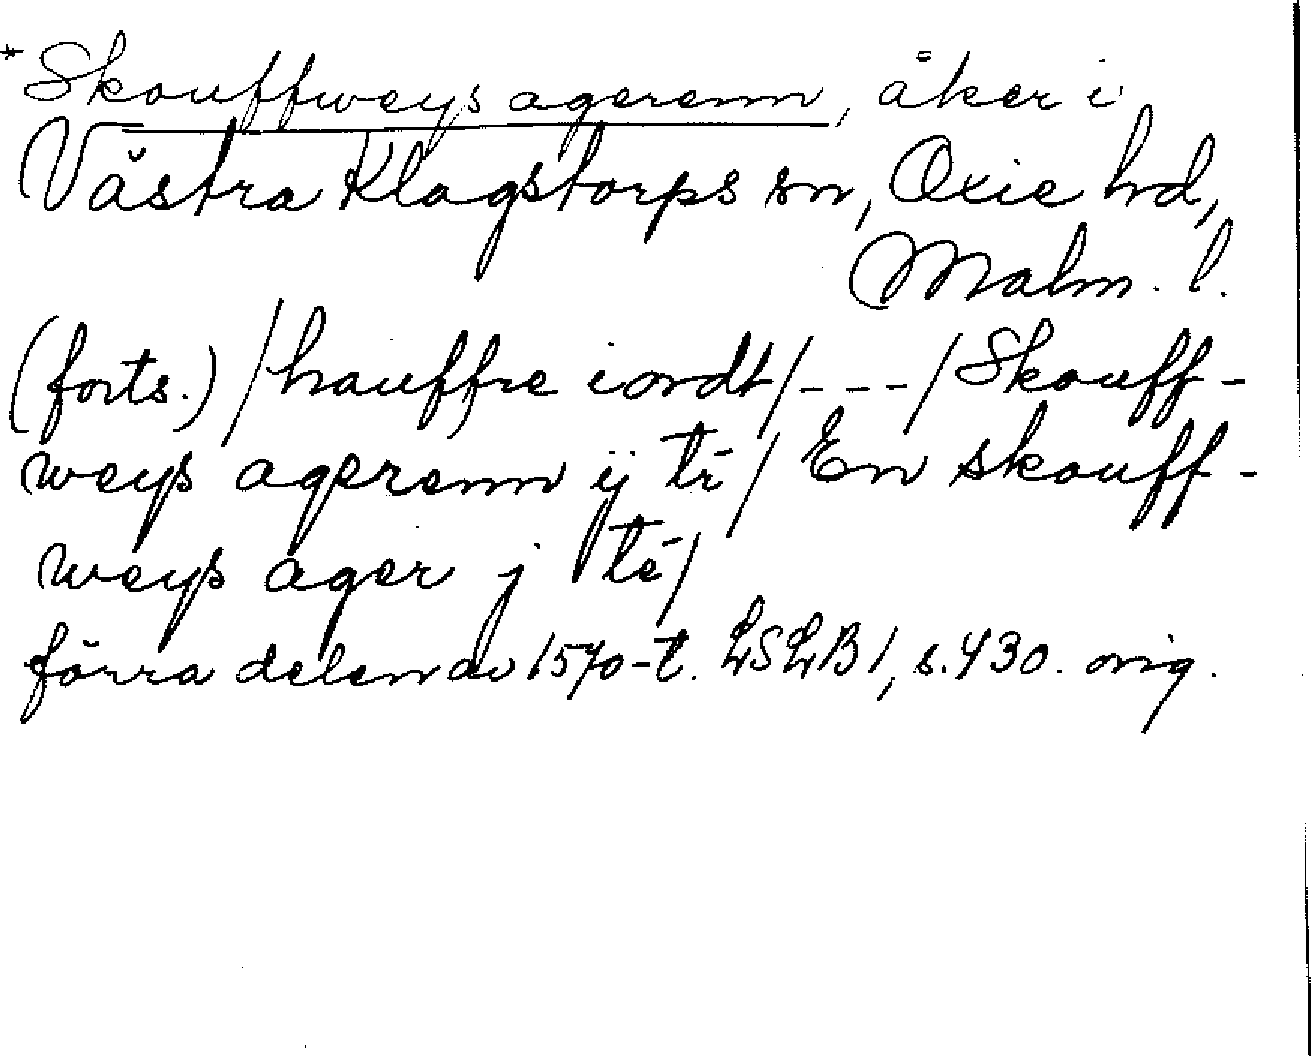 *Skouffweys agerenn, åker i
Västra Klagstorps sn, Oxie hd,
Malm. l.
(forts.) / hauffre iordt / - - - / Skouff-
weyß agerenn ij tē / En skouff-
weyß ager j tē /
förra delen av 1570-t. LSLB 1, s. 430. orig.